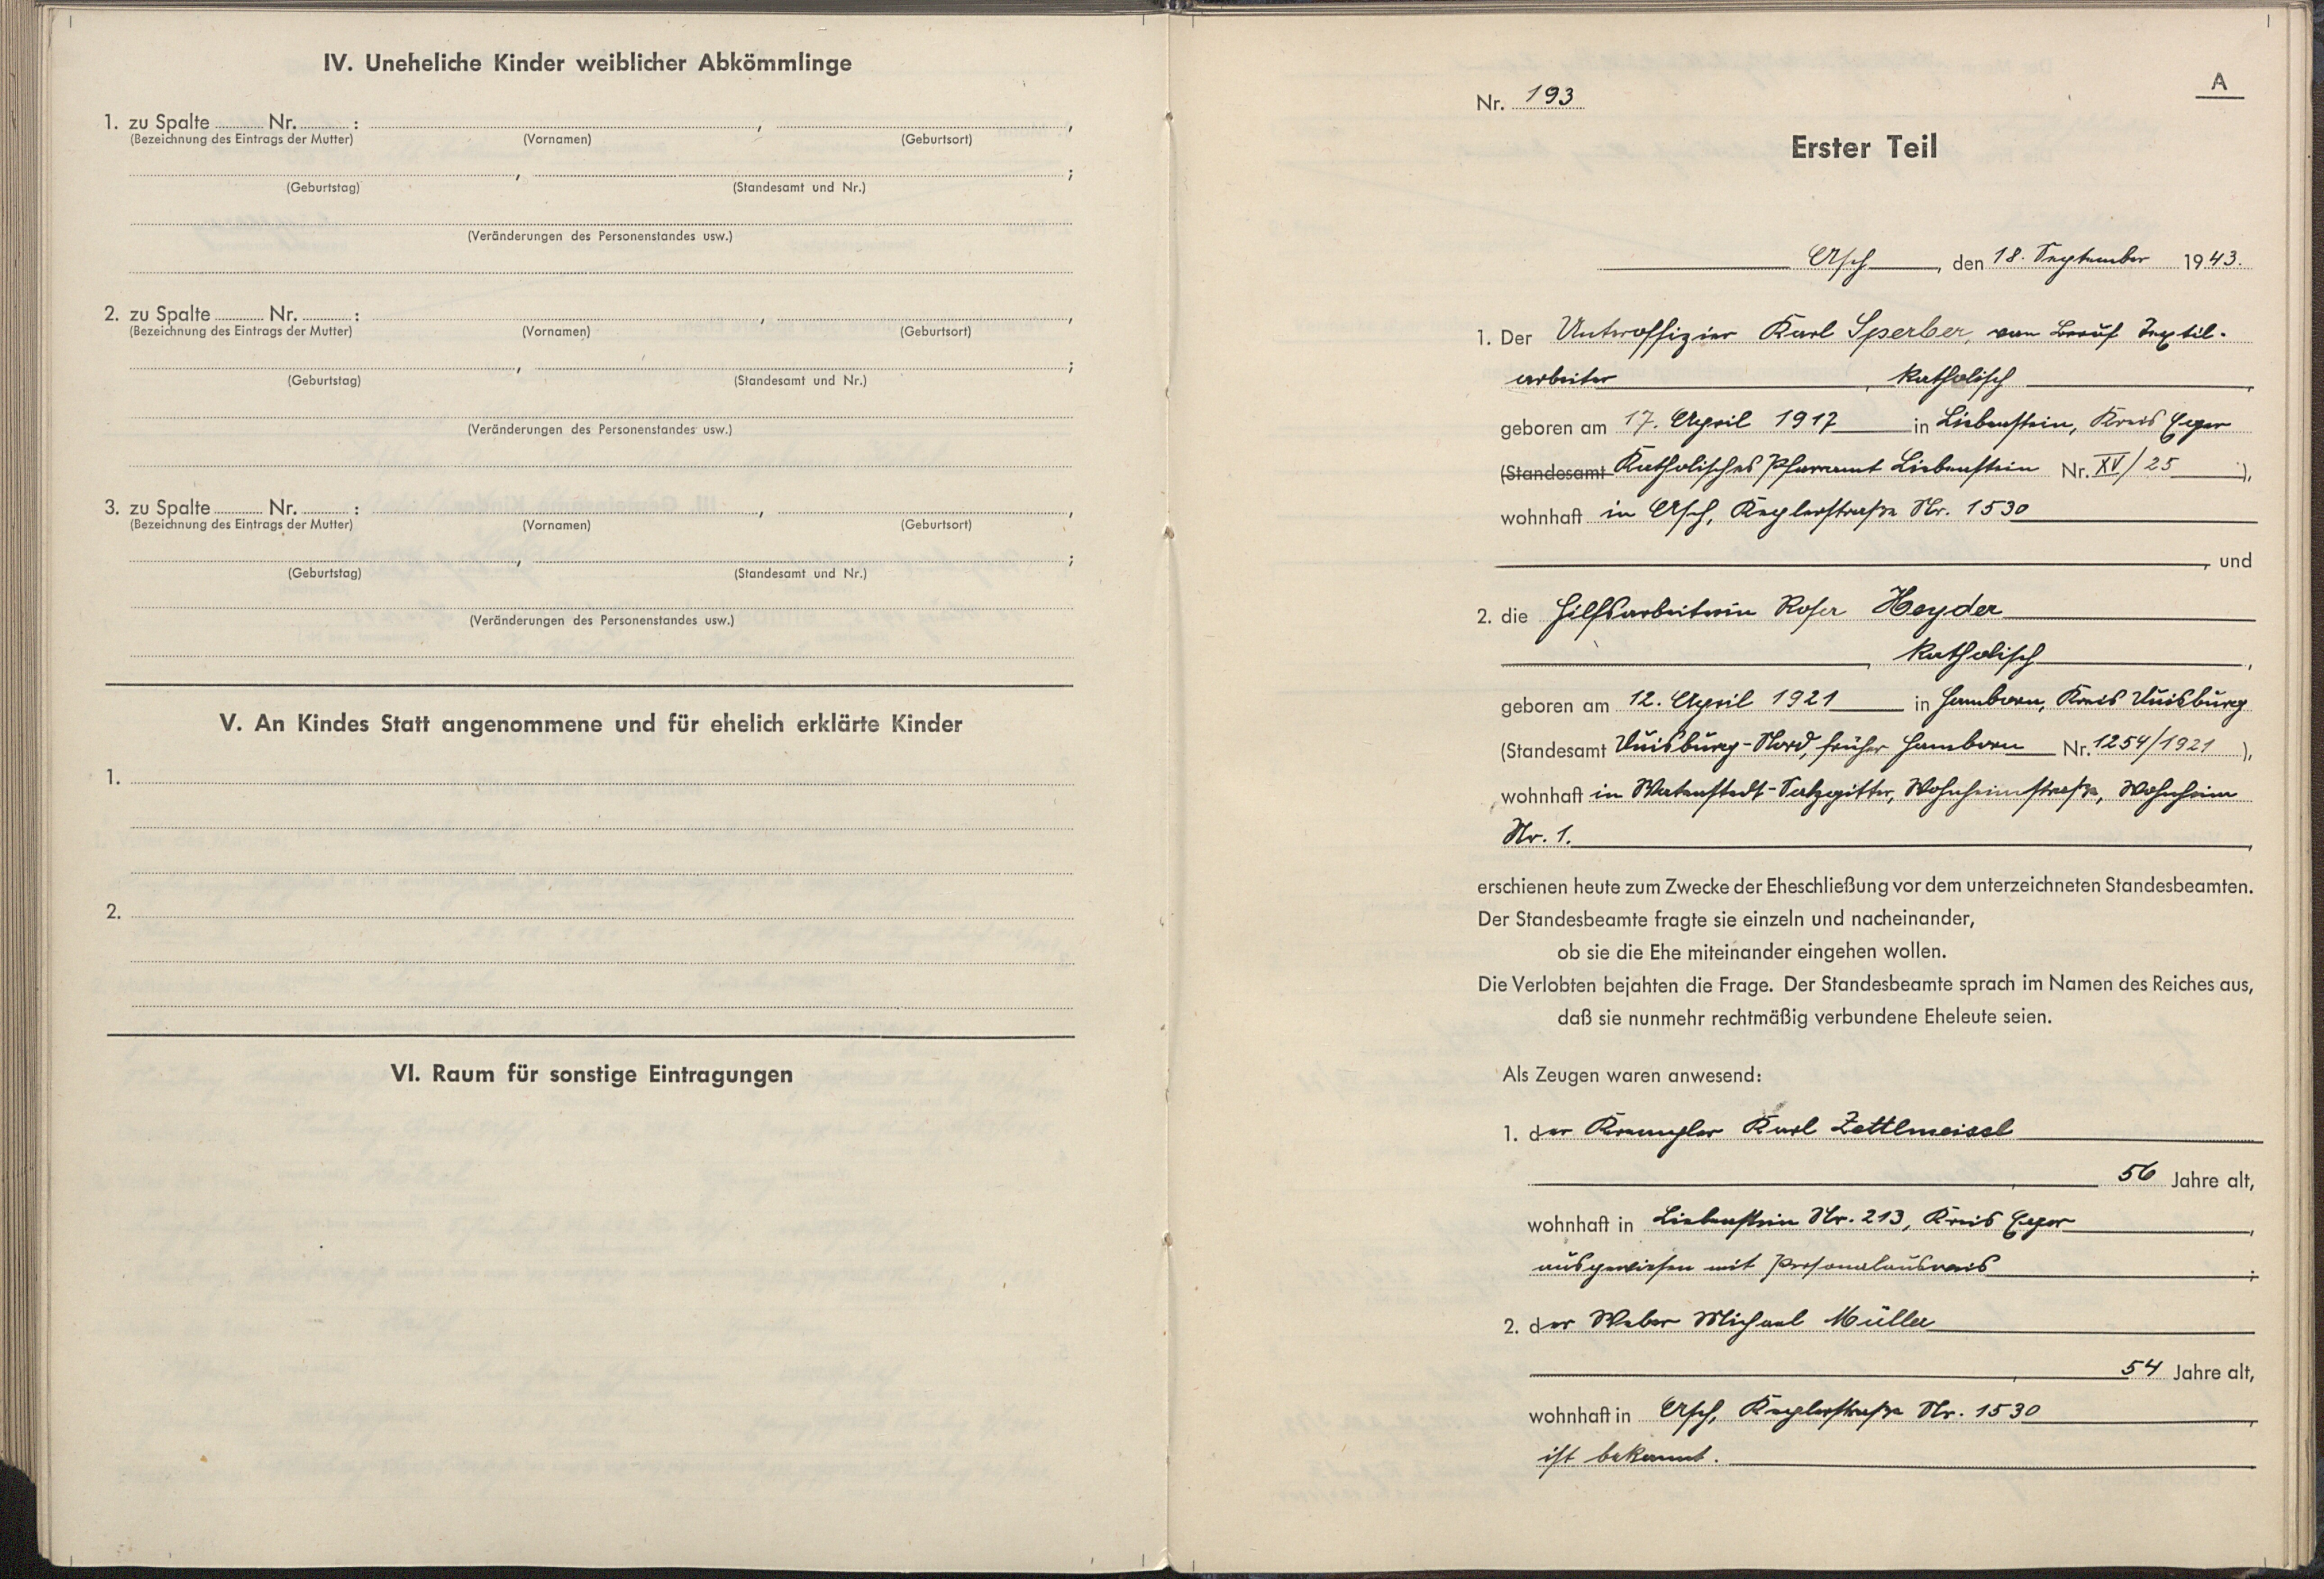 IV. Uneheliche Kinder weiblicher Abkömmlinge
1. zu Spalte Nr. : , ,
(Bezeichnung des Eintrags der Mutter) (Vornamen) (Geburtsort)
, ;
(Geburtstag) (Standesamt und Nr.)
(Veränderungen des Personenstandes usw.)
2. zu Spalte Nr. : , ,
(Bezeichnung des Eintrags der Mutter) (Vornamen) (Geburtsort)
, ;
(Geburtstag) (Standesamt und Nr.)
(Veränderungen des Personenstandes usw.)
3. zu Spalte Nr. : , ,
(Bezeichnung des Eintrags der Mutter) (Vornamen) (Geburtsort)
, ;
(Geburtstag) (Standesamt und Nr.)
(Veränderungen des Personenstandes usw.)
V. An Kindes Statt angenommene und für ehelich erklärte Kinder
1.
2.
VI. Raum für sonstige Eintragungen
A
Nr. 193
Erster Teil
Asch, den 18. September 1943.
1. Der Unteroffizier Karl Sperber, von Beruf Textil-
arbeiter, katholisch,
geboren am 17. April 1917 in Liebenstein, Kreis Eger
(Standesamt Katholisches Pfarramt Liebenstein Nr. XV/25),
wohnhaft in Asch, Keplerstraße Nr. 1530
, und
2. die Hilfsarbeiterin Rosa Heyder
, katholisch,
geboren am 12. April 1921 in Hamborn, Kreis Duisburg
(Standesamt Duisburg-Nord, früher Hamborn Nr. 1254/1921),
wohnhaft in Watenstedt-Salzgitter, Wohnheimstraße, Wohnheim
Nr. 1.,
erschienen heute zum Zwecke der Eheschließung vor dem unterzeichneten Standesbeamten.
Der Standesbeamte fragte sie einzeln und nacheinander,
ob sie die Ehe miteinander eingehen wollen.
Die Verlobten bejahten die Frage. Der Standesbeamte sprach im Namen des Reiches aus,
daß sie nunmehr rechtmäßig verbundene Eheleute seien.
Als Zeugen waren anwesend:
1. der Krempler Karl Zettlmeisel
, 56 Jahre alt,
wohnhaft in Liebenstein Nr. 213, Kreis Eger,
ausgewiesen mit Personalausweis;
2. der Weber Michael Müller
, 54 Jahre alt,
wohnhaft in Asch, Keplerstraße Nr. 1530,
ist bekannt.